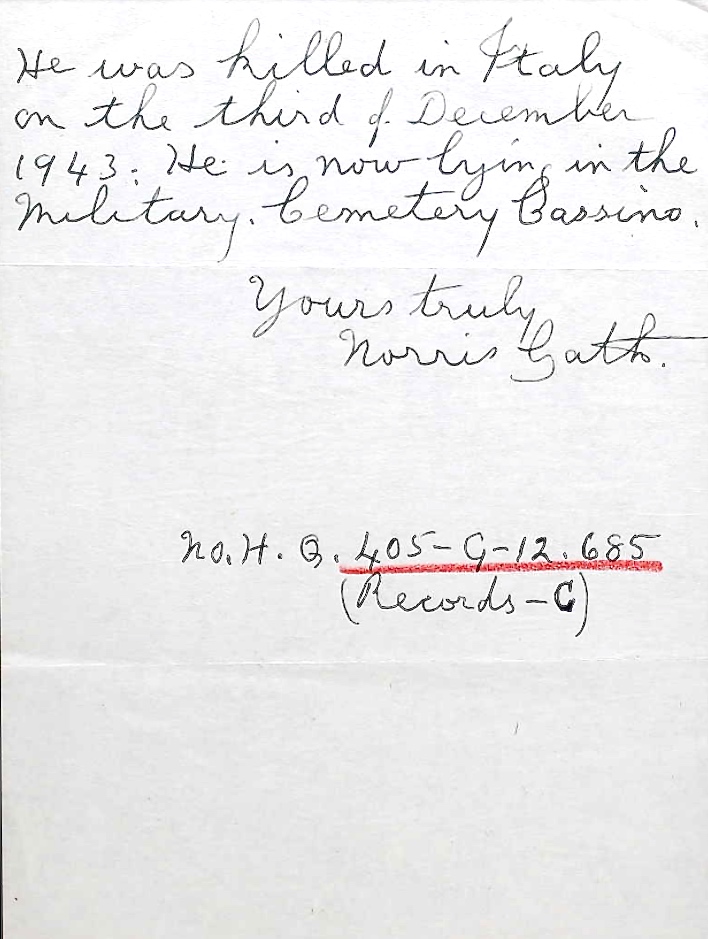 He was killed in Italy
on the third of December
1943. He is now lying in the
Military. Cemetery Cassino.
Yours truly
Norris Gath.
No. H. Q. 405-G-12.685
(Records-C)